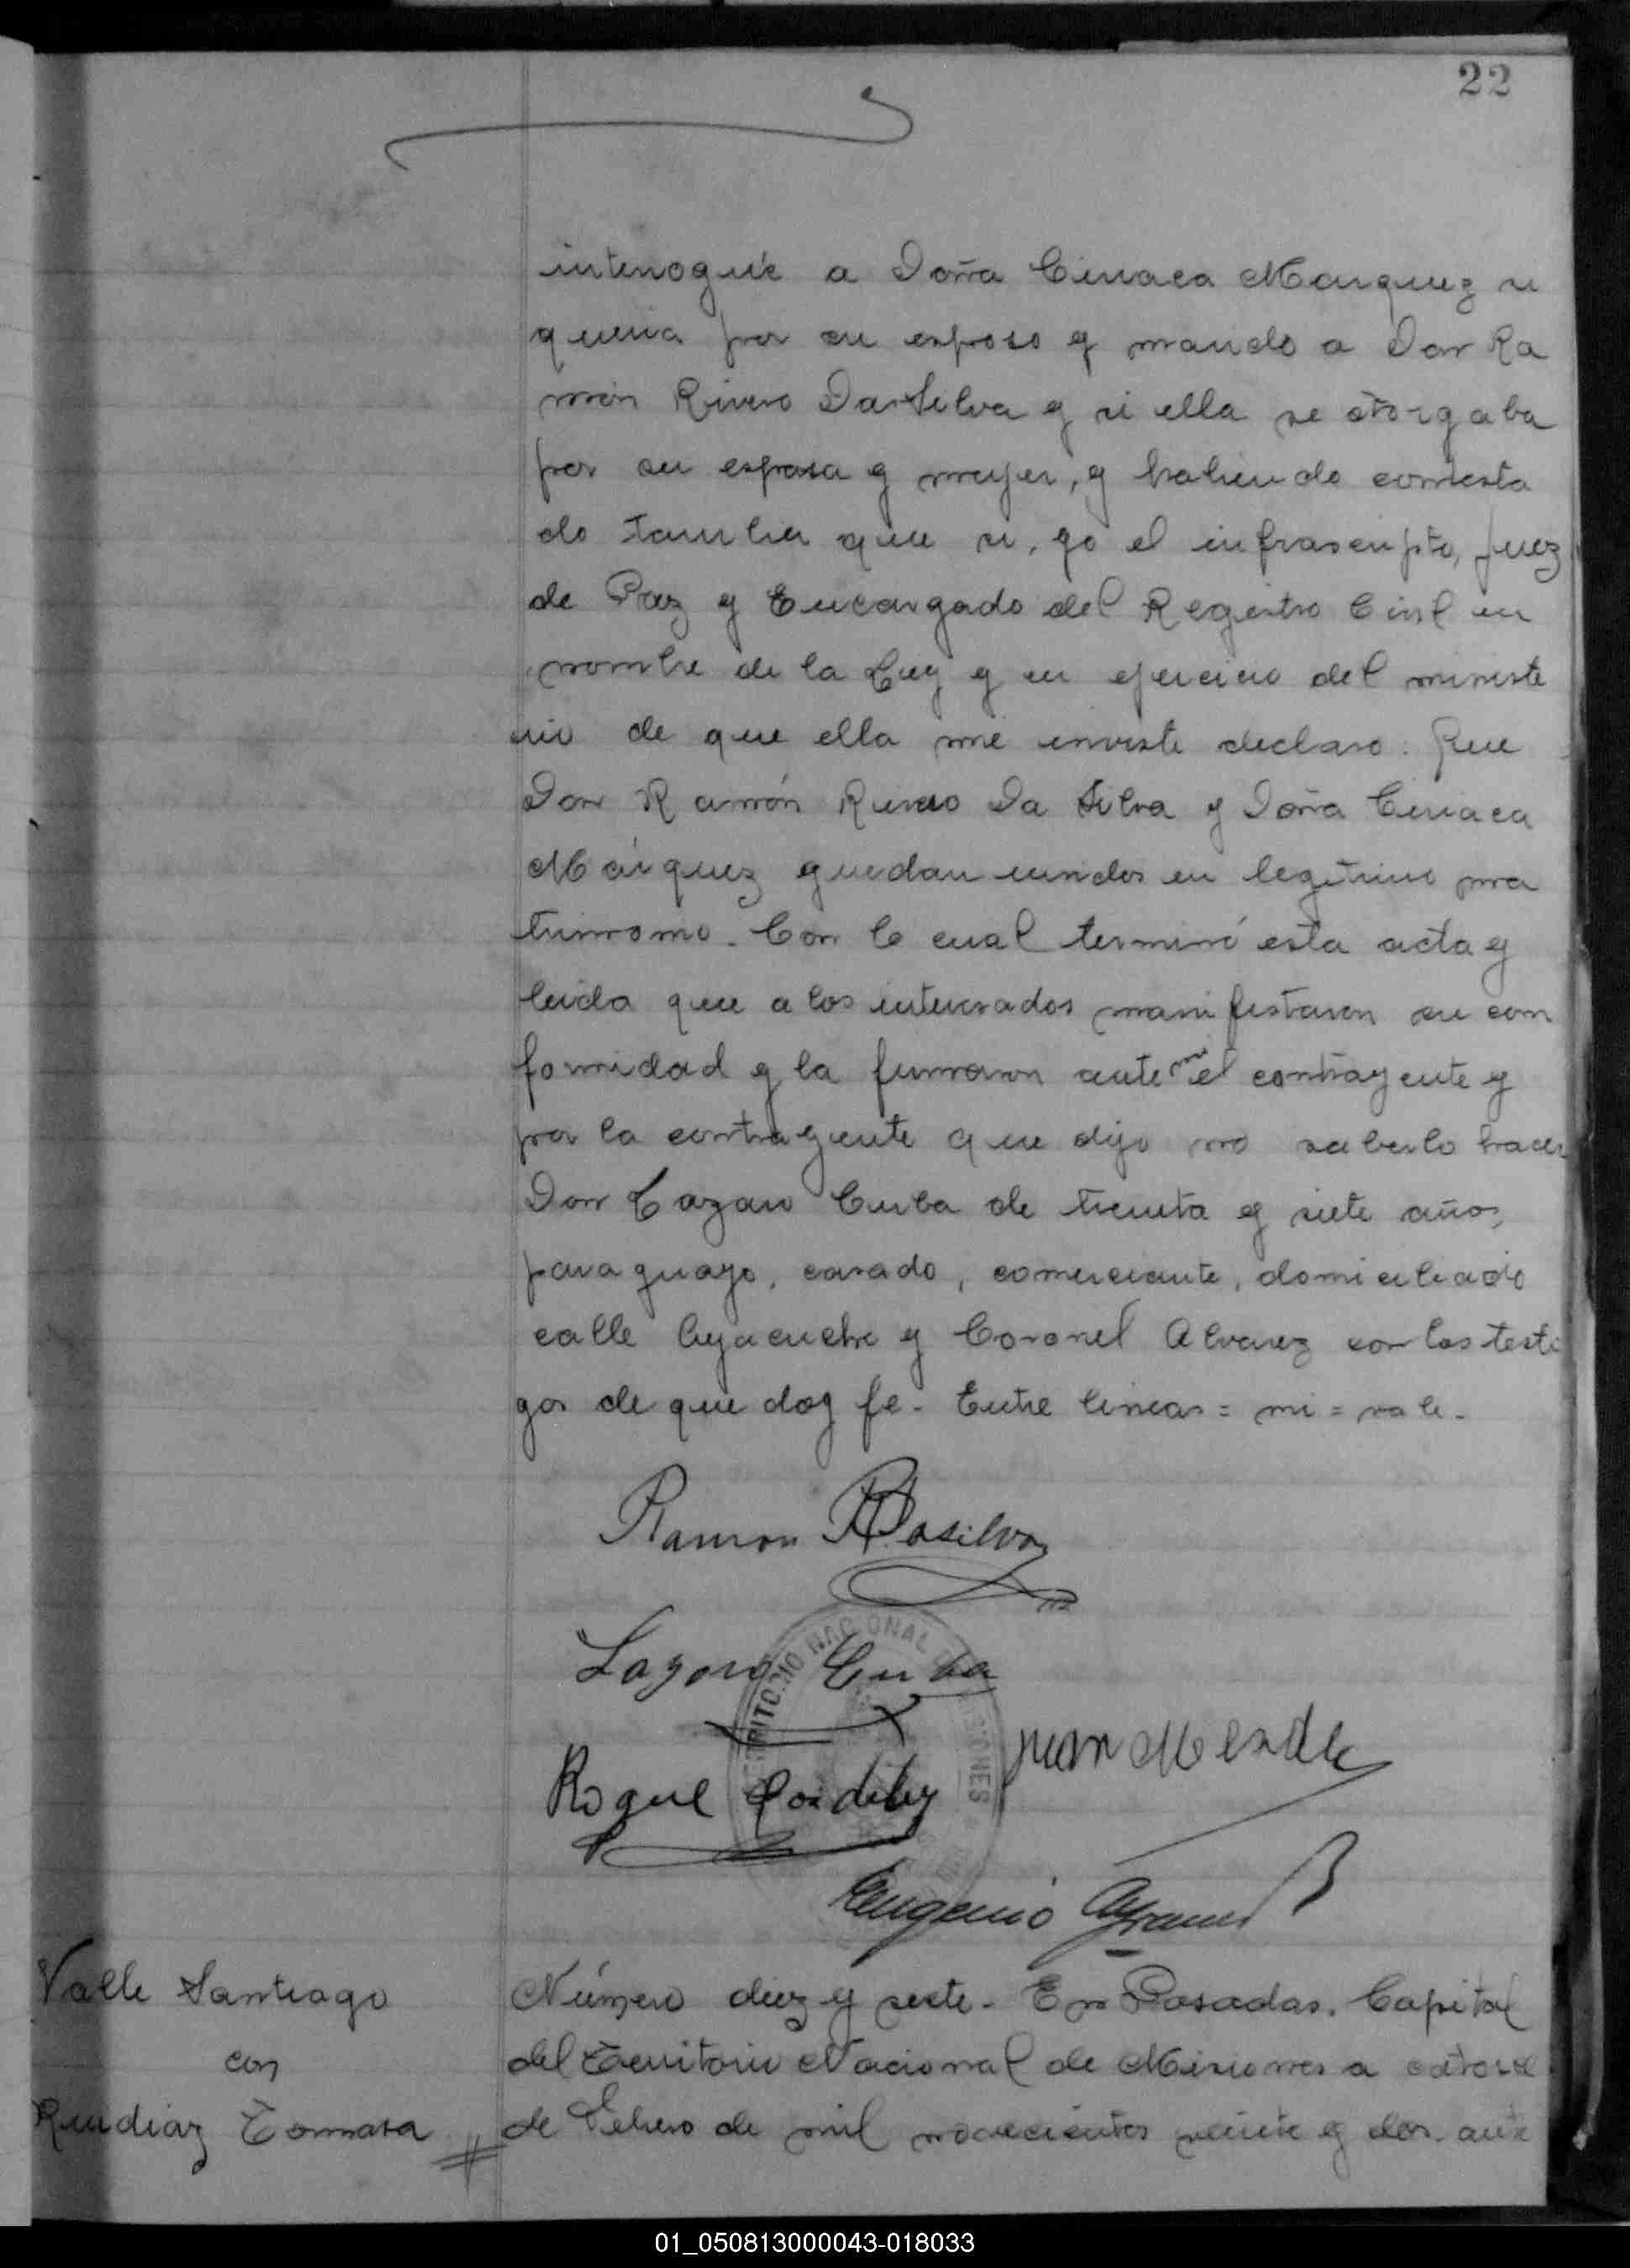 22
interrogué a Doña Ciriaca Marquez si
queria por su esposo y marido a Don Ra
món Rivero Da Silva y si ella se otorgaba
por su esposa y mujer, y habiendo contesta
do tambien que si, yo el infrascripto, Juez
de Paz y Encargado del Registro Civil en
nombre de la Ley y en ejercicio del ministe
rio de que ella me inviste declaro: Que
Don Ramón Rivero Da Silva y Doña Ciriaca
Márquez quedan unidos en legitimo ma
trimonio. Con lo cual terminó esta acta y
leida que a los interesados manifestaron su con
formidad y la firmaron ante mi el contrayente y
por la contrayente que dijo no saberlo hacer
Don Lazaro Curba de treinta y siete años,
paraguayo, casado, comerciante, domiciliado
calle Ayacucho y Coronel Alvarez con los testi
gos de que doy fe. Entre lineas = mi = vale.
Ramon R Dasilva
Lazaro Curba
TERRITORIO NACIONAL DE MISIONES
Juan
Roque
Eugenio
Valle Santiago
con
Ruidiaz Tomasa
Número diez y siete. En Posadas, Capital
del Territorio Nacional de Misiones a catorce
de Febrero de mil novecientos veinte y dos, ante
01_050813000043-018033